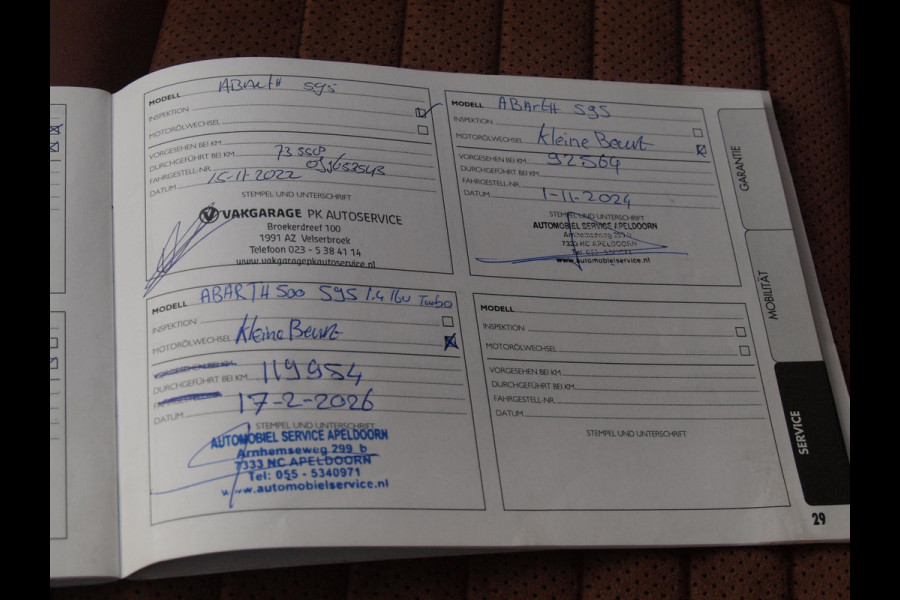 MODELL ABarth 595
INSPEKTION
MOTORÖLWECHSEL
VORGESEHEN BEI KM
DURCHGEFÜHRT BEI KM
FAHRGESTELL-NR.
DATUM 15-11-2022
STEMPEL UND UNTERSCHRIFT
VAKGARAGE PK AUTOSERVICE
Broekerdreef 100
1991 AZ Velserbroek
Telefoon 023 - 5 38 41 14
www.vakgaragepkautoservice.nl
MODELL ABarth 595
INSPEKTION
MOTORÖLWECHSEL Kleine Beurt
VORGESEHEN BEI KM 92564
DURCHGEFÜHRT BEI KM
FAHRGESTELL-NR.
DATUM 1-11-2024
STEMPEL UND UNTERSCHRIFT
AUTOMOBIEL SERVICE APELDOORN
Arnhemseweg 299 b
7333 NC APELDOORN
www.automobielservice.nl
MODELL ABARTH 500 595 1.4 16v Turbo
INSPEKTION
MOTORÖLWECHSEL Kleine Beurt
VORGESEHEN BEI KM
DURCHGEFÜHRT BEI KM 119954
DATUM 17-2-2026
STEMPEL UND UNTERSCHRIFT
AUTOMOBIEL SERVICE APELDOORN
Arnhemseweg 299 b
7333 NC APELDOORN
Tel: 055 - 5340971
www.automobielservice.nl
MODELL
INSPEKTION
MOTORÖLWECHSEL
VORGESEHEN BEI KM
DURCHGEFÜHRT BEI KM
FAHRGESTELL-NR.
DATUM
STEMPEL UND UNTERSCHRIFT
GARANTIE
MOBILITÄT
SERVICE
29